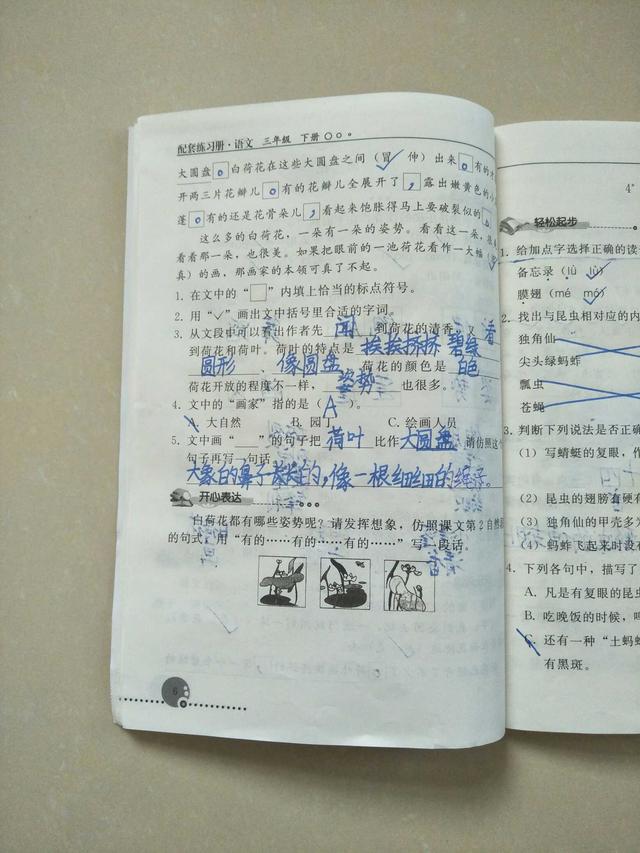 配套练习册·语文 三年级 下册
大圆盘。白荷花在这些大圆盘之间（冒✓ 伸）出来。有的才
开两三片花瓣儿。有的花瓣儿全展开了，露出嫩黄色的小
蓬。有的还是花骨朵儿，看起来饱胀得马上要破裂似的
这么多的白荷花，一朵有一朵的姿势。看看这一朵，很
看看那一朵，也很美。如果把眼前的一池荷花看作一大幅
真）的画，那画家的本领可真了不起。
1. 在文中的“□”内填上恰当的标点符号。
2. 用“✓”画出文中括号里合适的字词。
3. 从文段中可以看出作者先 闻 到荷花的清香，又
到荷花和荷叶。荷叶的特点是 挨挨挤挤 碧绿
圆形 、 像圆盘 荷花的颜色是 白色
荷花开放的程度不一样， 姿势 也很多。
4. 文中的“画家”指的是（A）。
A. 大自然 B. 园丁 C. 绘画人员
5. 文中画“____”的句子把 荷叶 比作 大圆盘 请仿照这个
句子再写一句话。
大象的鼻子长长的,像一根细细的绳子。
开心表达
白荷花都有哪些姿势呢？请发挥想象，仿照课文第2自然
的句式，用“有的……有的……有的……”写一段话。
6
4
轻松起步
1. 给加点字选择正确的读
备忘录（lù lǜ
膜翅（mé mó
2. 找出与昆虫相对应的内
独角仙
尖头绿蚂蚱
瓢虫
苍蝇
3. 判断下列说法是否正确
（1）写蜻蜓的复眼，用
（2）昆虫的翅膀有硬有
（3）独角仙的甲壳多为
（4）蚂蚱飞起来时没有
4. 下列各句中，描写了
A. 凡是有复眼的昆虫
B. 吃晚饭的时候，呜
C. 还有一种“土蚂蚱
有黑斑。